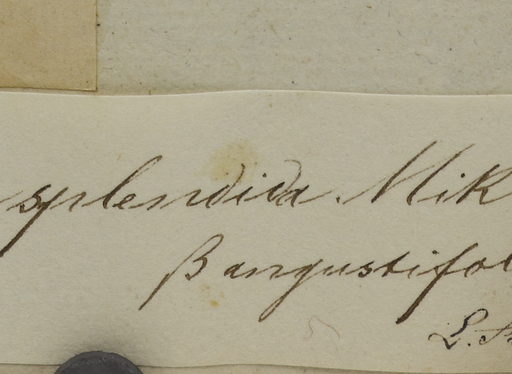 splendida Mik
β angustifol
L.